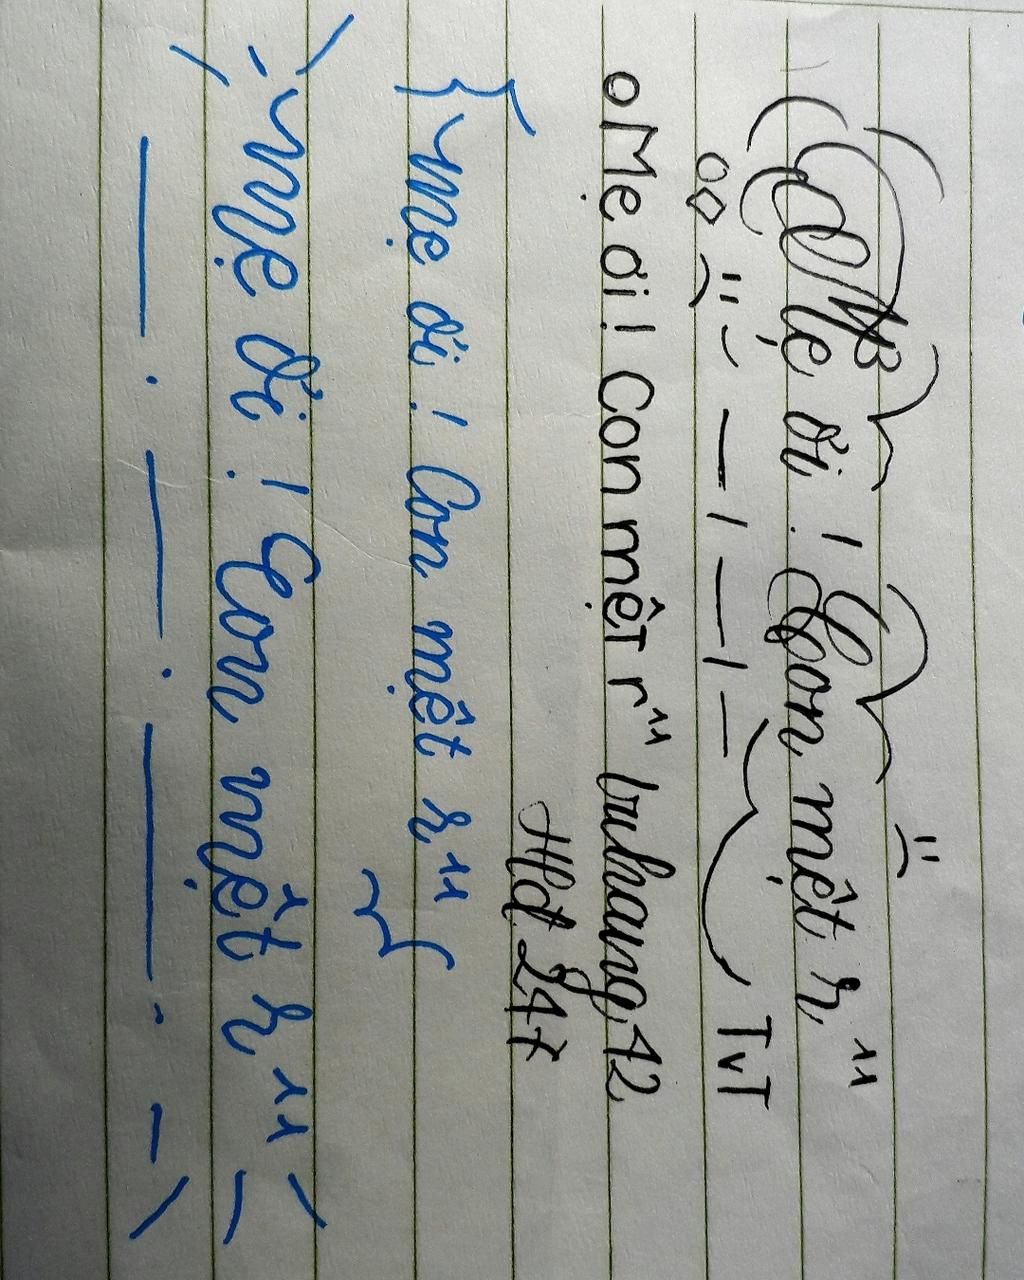 Mẹ ơi! Con mệt r¹¹
TvT
Mẹ ơi! Con mệt r¹¹ buhang42
Hd 247
Mẹ ơi! Con mệt r¹¹
Mẹ ơi! Con mệt r¹¹